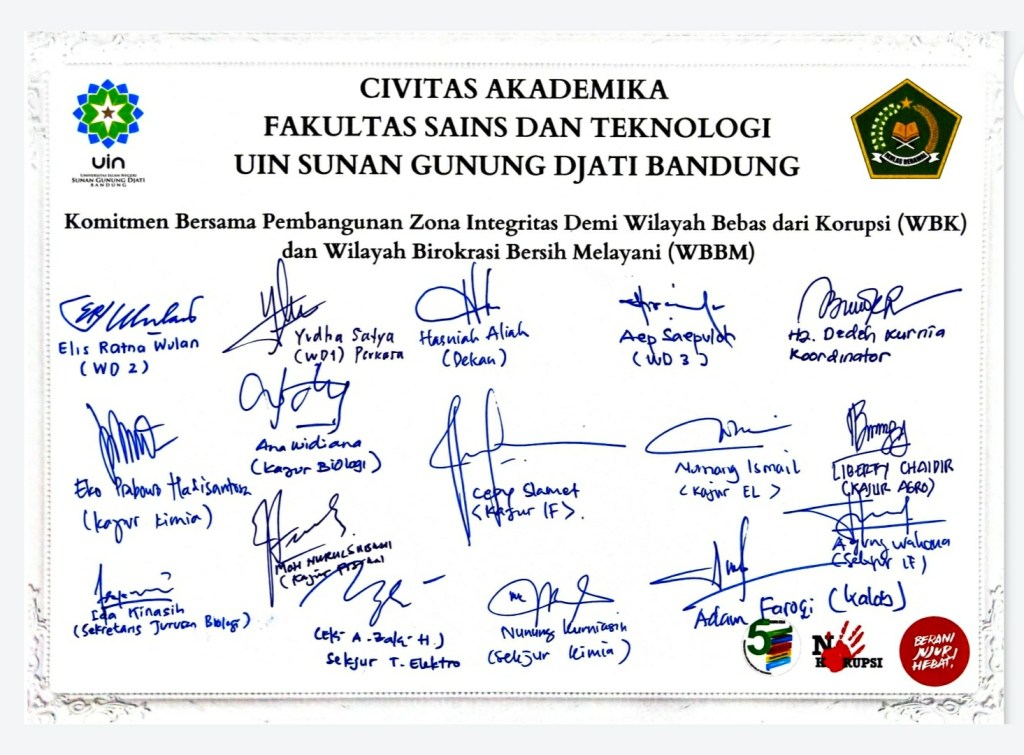 CIVITAS AKADEMIKA
FAKULTAS SAINS DAN TEKNOLOGI
UIN SUNAN GUNUNG DJATI BANDUNG
uin
UNIVERSITAS ISLAM NEGERI
SUNAN GUNUNG DJATI
BANDUNG
Komitmen Bersama Pembangunan Zona Integritas Demi Wilayah Bebas dari Korupsi (WBK)
dan Wilayah Birokrasi Bersih Melayani (WBBM)
Elis Ratna Wulan
(WD 2)
Yudha Satya
(WD1) Perkara
Hasniah Aliah
(Dekan)
Aep Saepuloh
(WD 3)
Hj. Dedeh Kurnia
Koordinator
Eko Prabowo Hadisantoso
(Kajur Kimia)
Ana Widiana
(Kajur Biologi)
Cepy Slamet
(Kajur IF).
Nanang Ismail
(Kajur EL)
LIBERTY CHAIDIR
(KAJUR AGRO)
Agung Wahana
(Sekjur IF)
Ida Kinasih
(Sekretaris Jurusan Biologi)
Sekjur T. Elektro
Nunung Kurniasih
(Sekjur Kimia)
Adam Faroqi (Kalab)
5
NO KORUPSI
BERANI
JUJUR
HEBAT!